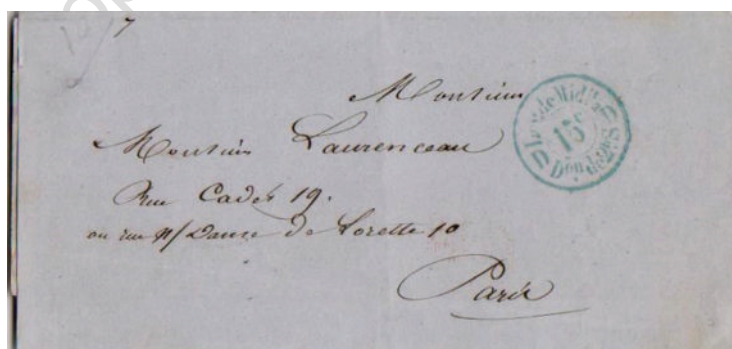 7
Monsieur
Monsieur Laurenceau
Rue Cadet 19.
ou rue N/ Dame De Lorette 10
Paris
15